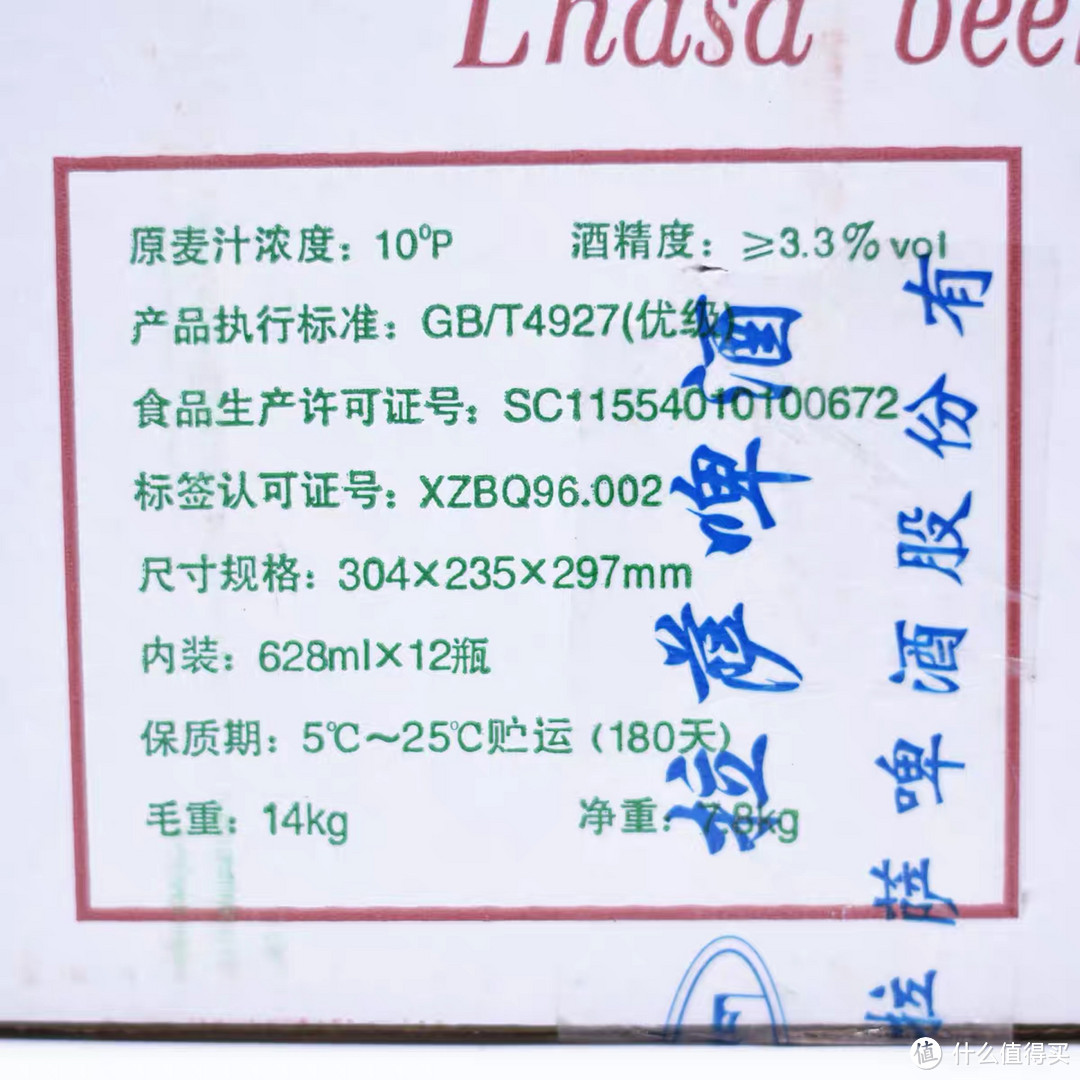 Lhasa beer
原麦汁浓度：10⁰P 酒精度：≥3.3%vol
产品执行标准：GB/T4927(优级)
食品生产许可证号：SC11554010100672
标签认可证号：XZBQ96.002
尺寸规格：304×235×297mm
内装：628ml×12瓶
保质期：5℃～25℃贮运（180天）
毛重：14kg 净重：7.8kg
拉萨啤酒
拉萨啤酒股份有
值 什么值得买